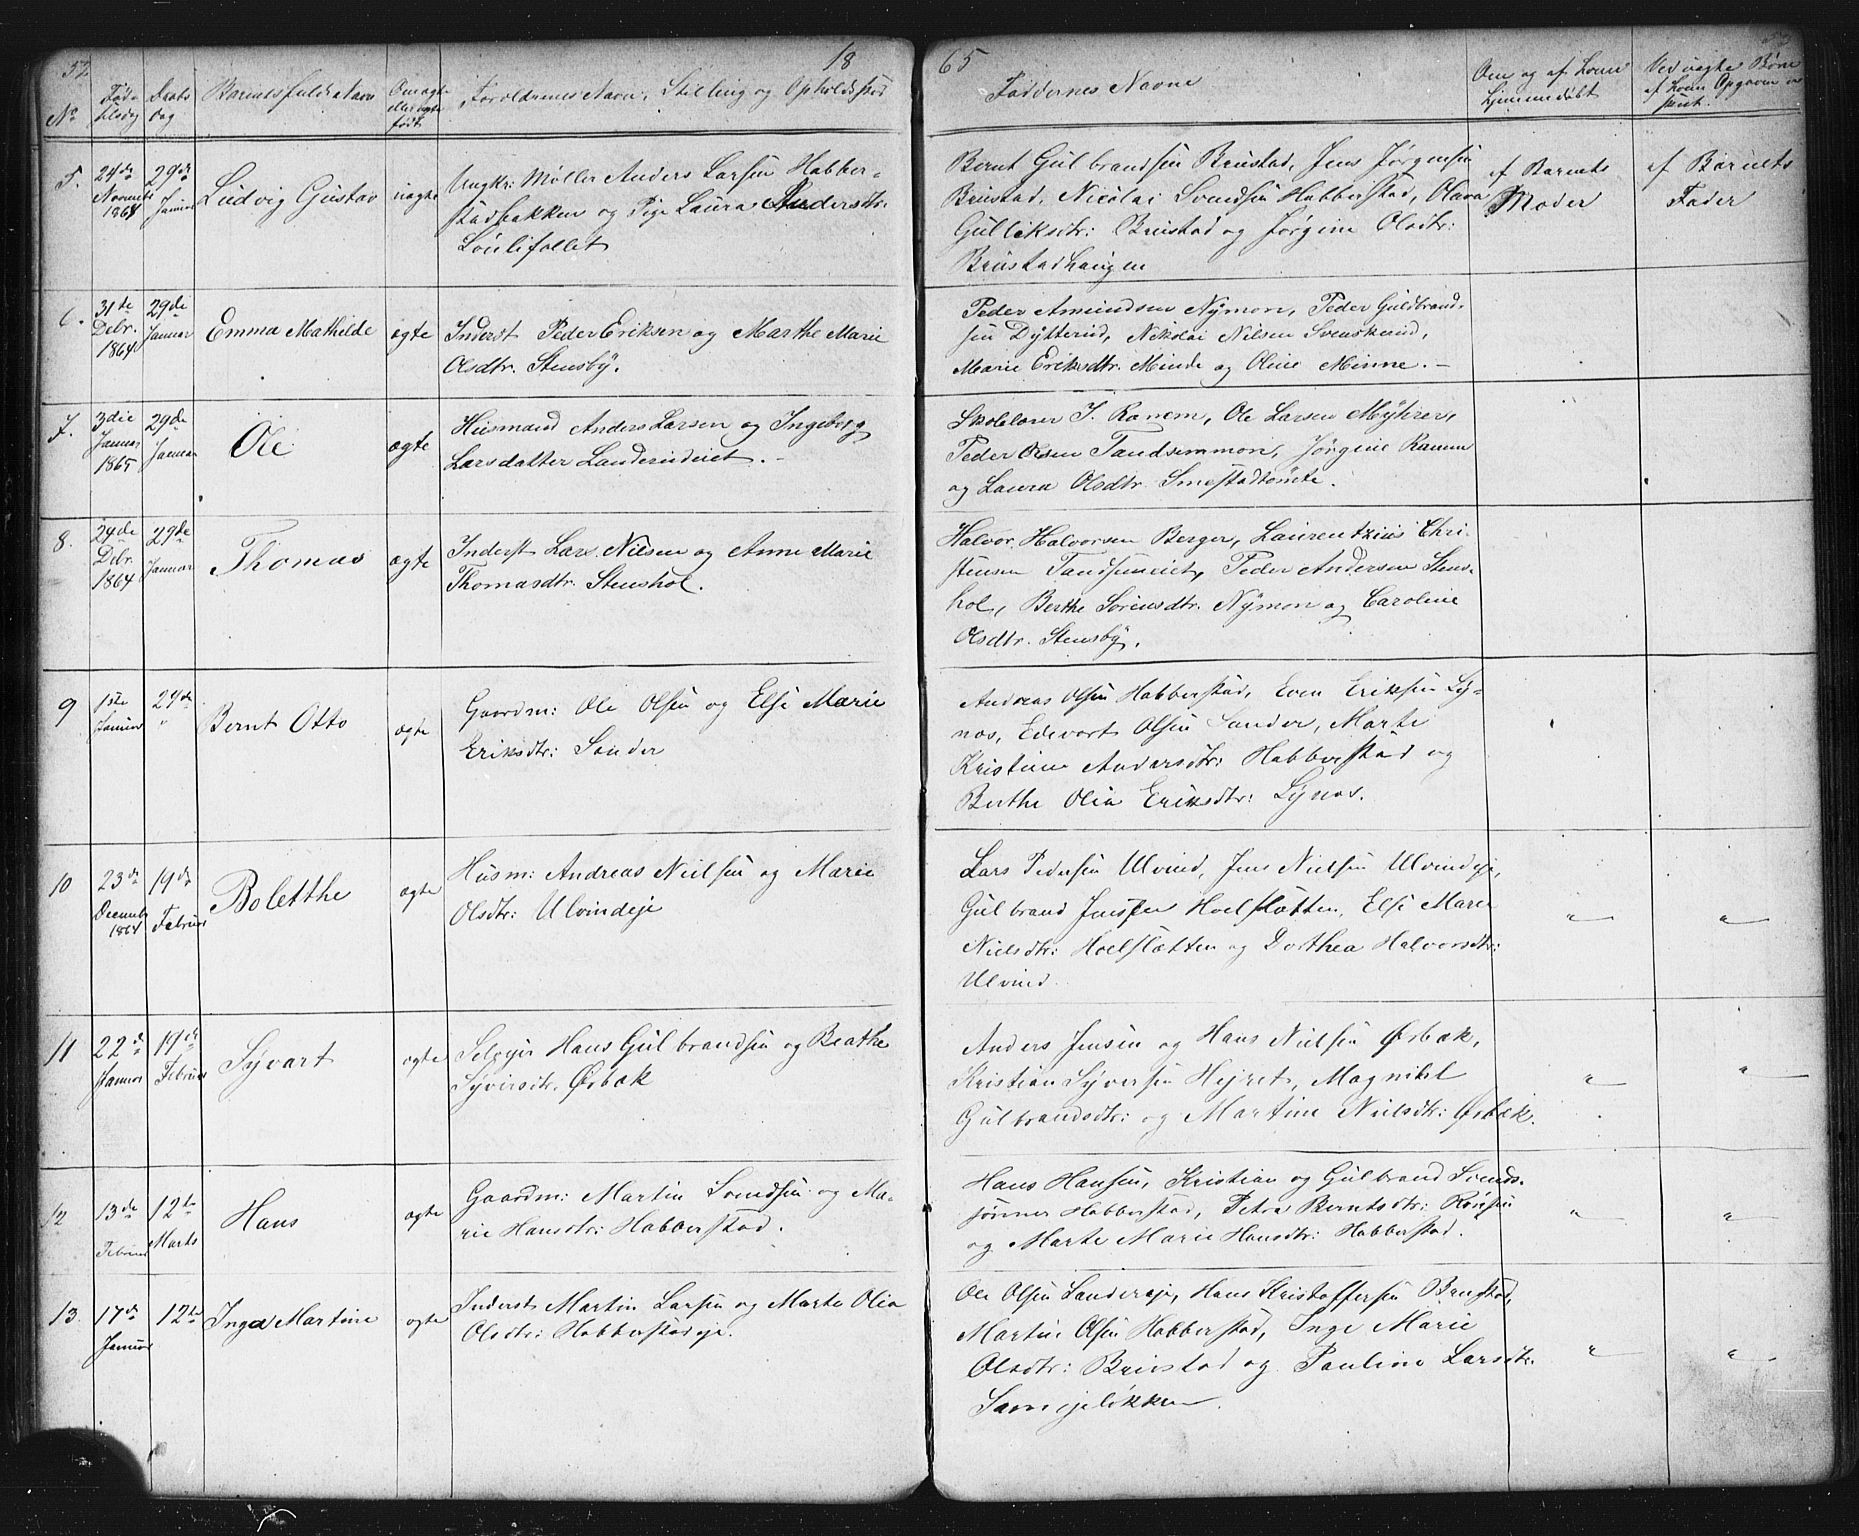 52
18
65
No
Fød-
selsdag
Daabs
dag
Barnets fulde Navn
Om ægte
eller uægte
født
Forældrenes Navn, Stilling og Opholdssted
Faddernes Navne
Om og af hvem
hjemmedøbt
Ved uægte Børn
af hvem Opgaven er
skeet.
5.
24de
Novembr
1864
29de
Januar
Ludvig Gustav
uægte
Ungkr: Møller Anders Larsen Habber-
stadbakken og Pige Laura Andersdtr:
Bernt Gulbrandsen Brustad, Jens Jørgensen
Brustad, Nicolai Svendsen Habberstad, Olava
Gulliksdtr: Brustad og Jørgine Olsdtr:
Brustadhaugen
af Barnets
Moder
af Barnets
Fader
6.
31te
Debr.
1864
29de
Januar
Emma Mathilde
ægte
Inderst Peder Eriksen og Marthe Marie
Olsdtr. Stensby.
Peder Amundsen Nymon, Peder Guldbrand-
sen Dytterud, Nikolai Nilsen Svenskerud,
Marie Eriksdtr. Minde og Oline Minne. -
7.
3die
Januar
1865
29de
Januar
Ole
ægte
Husmand Anders Larsen og Ingeborg
Larsdatter Landerudeiet. -
Skolelærer J. Ranem, Ole Larsen Myhrer,
Peder Olsen Tandsemmon, Jørgine Ranem
og Laura Olsdtr. Smestadtomte.
8.
24de
Debr.
1864
29de
Januar
Thomas
ægte
Inderst Lars Nilsen og Anne Marie
Thomasdtr. Stenshol.
Halvor Halvorsen Berger, Laurentzius Chri-
stensen Tandsemeiet, Peder Andersen Stens-
hol, Berthe Sørensdtr. Nymon og Caroline
Olsdtr. Stensby.
9
1ste
Januar
29de
"
Bernt Otto
ægte
Gaardm: Ole Olsen og Else Marie
Eriksdtr: Sander
Andreas Olsen Habberstad, Even Eriksen Ly-
nas, Edevart Olsen Sander, Marte
Kristine Andersdtr: Habberstad og
Berthe Olia Eriksdtr: Lynas.
10
23de
Decembr
1864
19de
Februar
Boletthe
ægte
Husm: Andreas Nielsen og Marie
Olsdtr: Ulvindeje
Lars Pedersen Ulvind, Jens Nielsen Ulvindeje,
Gulbrand Jensen Hoelslætten, Else Marie
Nielsdtr: Hoelslætten og Dorthea Halvorsdtr:
Ulvind.
"
"
11
22de
Januar
19de
Februar
Syvart
ægte
Selvejer Hans Gulbrandsen og Beathe
Syversdtr. Ørbæk
Anders Jensen og Hans Nielsen Ørbæk,
Kristian Syversen Hejret, Magnild
Gulbrandsdtr: og Martine Nielsdtr: Ørbæk.
"
"
12
13de
Februar
12te
Marts
Hans
ægte
Gaardm: Martin Svendsen og Ma-
rie Hansdtr: Habberstad.
Hans Hansen, Kristian og Gulbrand Svends-
sønner Habberstad, Petra Berntsdtr:
og Marte Marie Hansdtr: Habberstad.
"
"
13.
17de
Januar
12te
Inga Martine
ægte
Inderst Martin Larsen og Marte Olia
Olsdtr: Habberstadeje.
Ole Olsen Sandereje, Hans Kristoffersen Brustad,
Martin Olsen Habberstad, Inge Marie
Olsdtr: Brustad og Pauline Larsdtr.
"
"